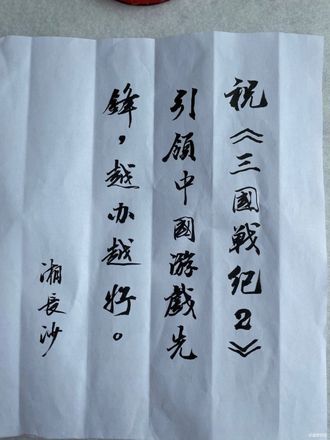 祝《三國戰纪2》
引領中國游戲先
鋒，越办越好。
湘長沙